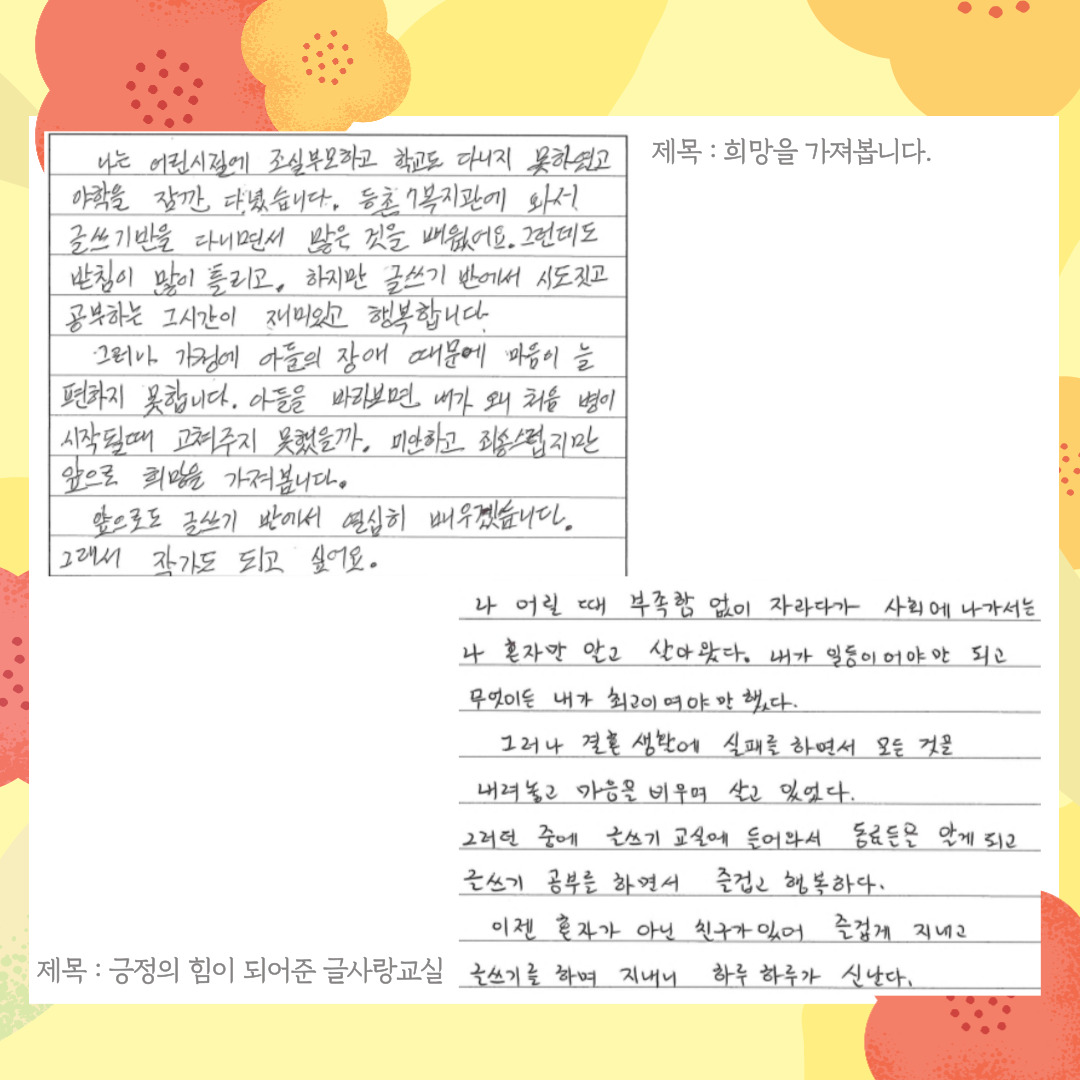 제목 : 희망을 가져봅니다.
나는 어린시절에 조실부모하고 학교도 다니지 못하였고
야학을 잠깐 다녔습니다. 등촌7복지관에 와서
글쓰기반을 다니면서 많은 것을 배웠어요. 그런데도
받침이 많이 틀리고. 하지만 글쓰기 반에서 시도짓고
공부하는 그시간이 재미있고 행복합니다
그러나 가정에 아들의 장애 때문에 마음이 늘
편하지 못합니다. 아들을 바라보면 내가 왜 처음 병이
시작될때 고쳐주지 못했을까. 미안하고 죄송스럽지만
앞으로 희망을 가져봅니다.
앞으로도 글쓰기 반에서 열심히 배우겠습니다.
그래서 작가도 되고 싶어요.
나 어릴 때 부족함 없이 자라다가 사회에 나가서는
나 혼자만 알고 살아왔다. 내가 일등이어야만 되고
무엇이든 내가 최고이여야만 했다.
그러나 결혼 생활에 실패를 하면서 모든 것을
내려놓고 마음을 비우며 살고 있었다.
그러던 중에 글쓰기 교실에 들어와서 동료들을 알게 되고
글쓰기 공부를 하면서 즐겁고 행복하다.
이젠 혼자가 아닌 친구가 있어 즐겁게 지내고
글쓰기를 하며 지내니 하루 하루가 신난다.
제목 : 긍정의 힘이 되어준 글사랑교실